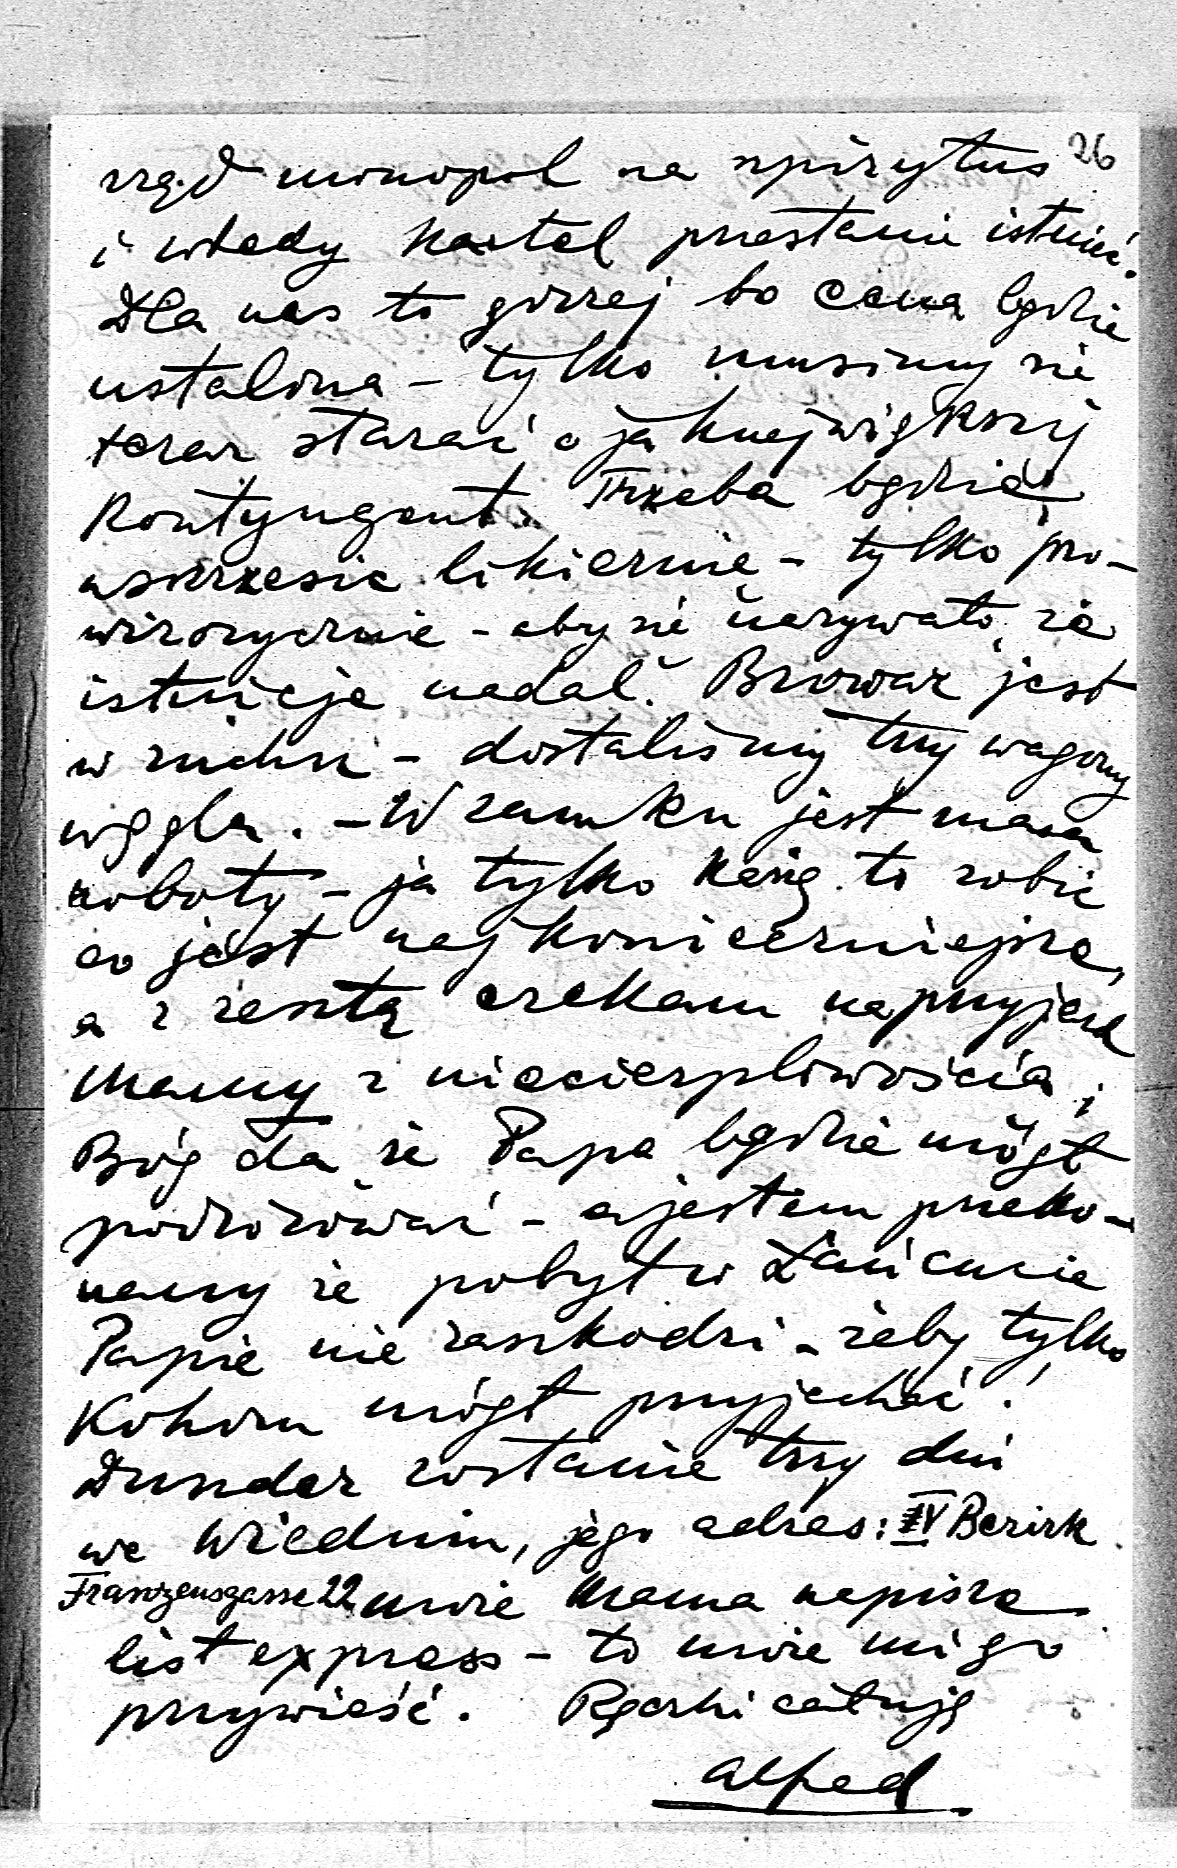 26
rząd monopol na spirytus
i wtedy kartel przestanie istnieć.
Dla nas to gorzej bo cena będzie
ustalona – tylko musimy się
teraz starać o jaknajwiększy
kontyngent. Trzeba będzie
wskrzesić likiernię – tylko pro-
wizorycznie – aby się nazywało, że
istnieje nadal. Browar jest
w ruchu – dostaliśmy trzy wagony
węgla. – W zamku jest masa
roboty – ja tylko każę to robić
co jest najkonieczniejsze,
a z resztą czekam na przyjazd
Mamy z niecierpliwością;
Bóg da że Papa będzie mógł
podróżować – a jestem przeko-
nany że pobyt w Łańcucie
Papie nie zaszkodzi – żeby tylko
Kohorn mógł przyjechać!
Dunder zostanie trzy dni
we Wiedniu, jego adres: IV Bezirk
Franzensgasse 22 może Mama napisze
list express – to może mi go
przywieść. Rączki całuję
Alfred